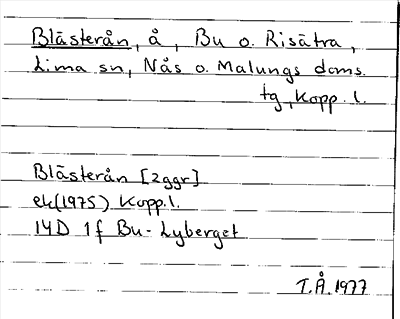 Blästerån, å, Bu o. Risätra,
Lima sn, Nås o. Malungs doms.
tg, Kopp. l.
Blästerån [2ggr]
ek(1975) Kopp.l.
14D 1f Bu-Lyberget
T.Å. 1977